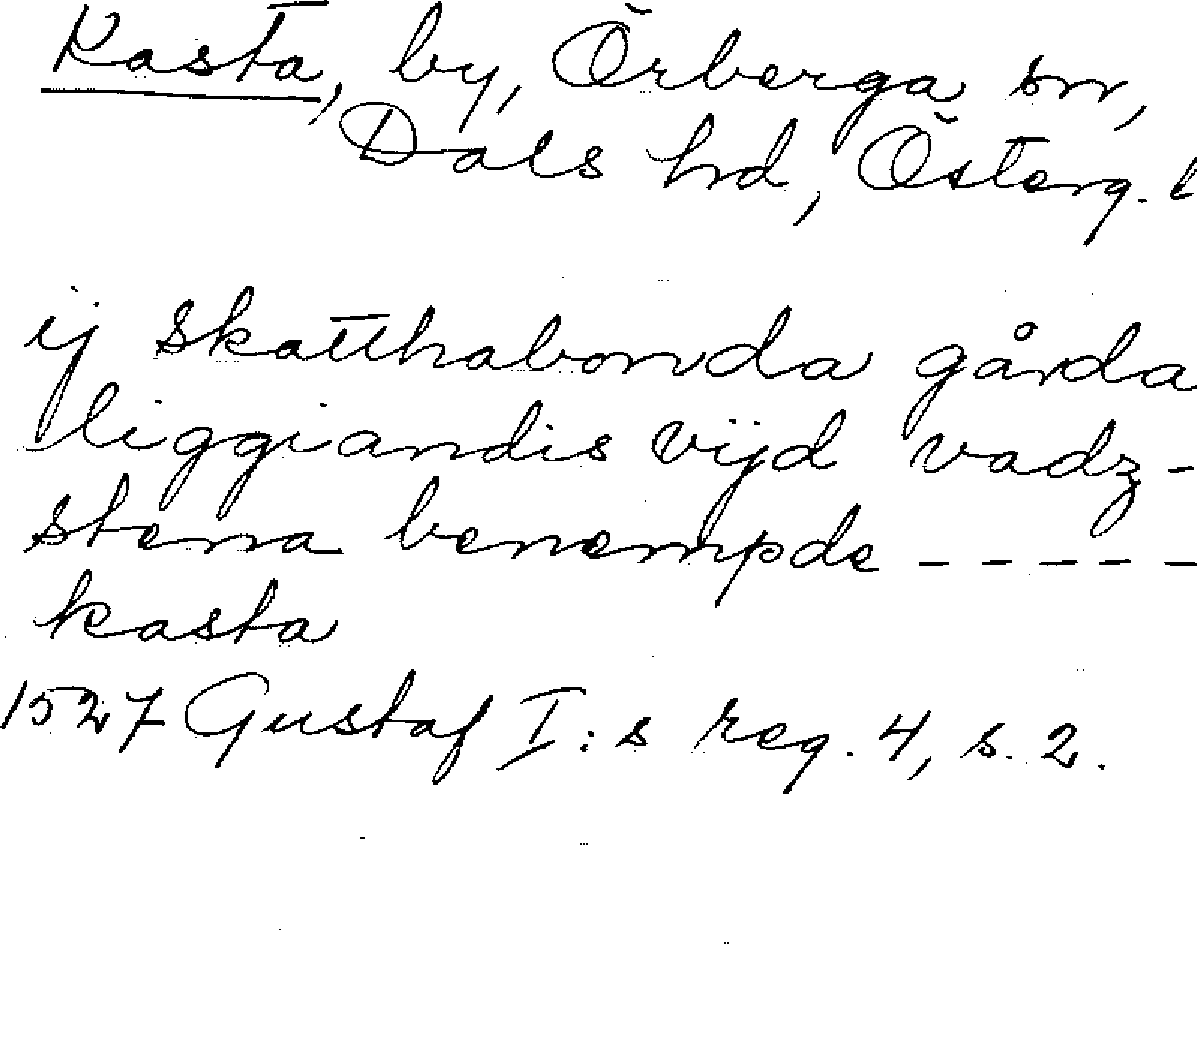 Kasta, by, Örberga sn,
Dals hd, Österg. l
ij skatthabonda gårda
liggiandis vijd vadz-
stena benempde - - - - -
kasta
1527 Gustaf I:s reg. 4, s. 2.